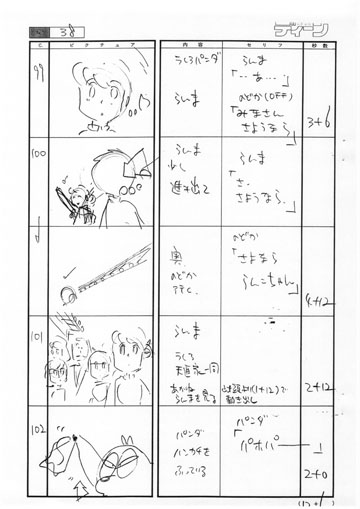 38
ディーン
C
ピクチュア
内容
セリフ
秒数
99
うしろパンダ
らんま
らんま
「…あ…」
のどか(OFF)
「みなさん
さようなら」
3+6
100
らんま
少し
進み出て
らんま
「さ、
さようなら。」
奥
のどか
のどか
「さよなら
らんこちゃん」
4+12
101
らんま
うしろ
天道家一同
あかね
らんまを見る
動き出し
2+12
102
パンダ
パンダ
ハンカチを
ふっている
「パホパ
2+0